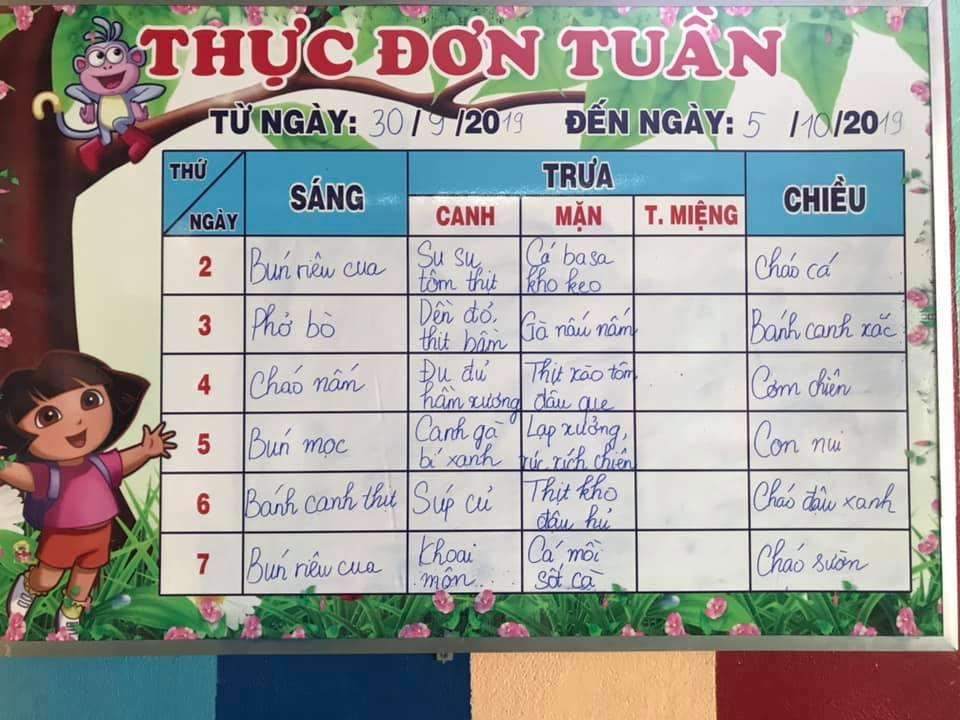 THỰC ĐƠN TUẦN
TỪ NGÀY: 30/9/2019 ĐẾN NGÀY: 5/10/2019
THỨ
NGÀY
SÁNG
TRƯA
CHIỀU
CANH MẶN T. MIỆNG
2 Bún riêu cua
Su su
tôm thịt
Cá basa
kho keo
Cháo cá
3 Phở bò
Dền đỏ,
thịt bầm
Gà nấu nấm
Bánh canh xắc
4 Cháo nấm
Đu đủ
hầm xương
Thịt xào tôm
đậu que
Cơm chiên
5 Bún mọc
Canh gà
bí xanh
Lạp xưởng,
xúc xích chiên
Con nui
6 Bánh canh thịt
Súp củ
Thịt kho
đậu hủ
Cháo đậu xanh
7 Bún riêu cua
Khoai
môn
Cá mồi
sốt cà
Cháo sườn